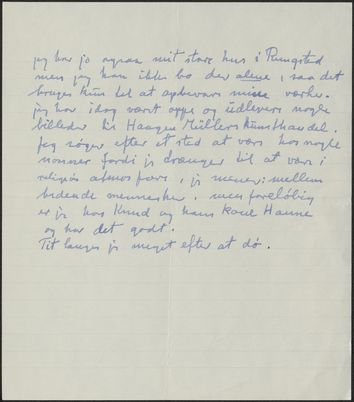 jeg har jo ogsaa mit store hus i Rungsted
men jeg kan ikke bo der alene, saa det
bruges kun til at opbevare mine værker.
jeg har idag været oppe og udlevere nogle
billeder til Haagen Müllers kunsthandel.
Jeg søger efter et sted at være hos nogle
nonner fordi jeg trænger til at være i
religiøs atmosfære, jeg mener: mellem
bedende mennesker, men foreløbig
er jeg hos Knud og hans kone Hanne
og har det godt.
Tit længes jeg meget efter at dø.